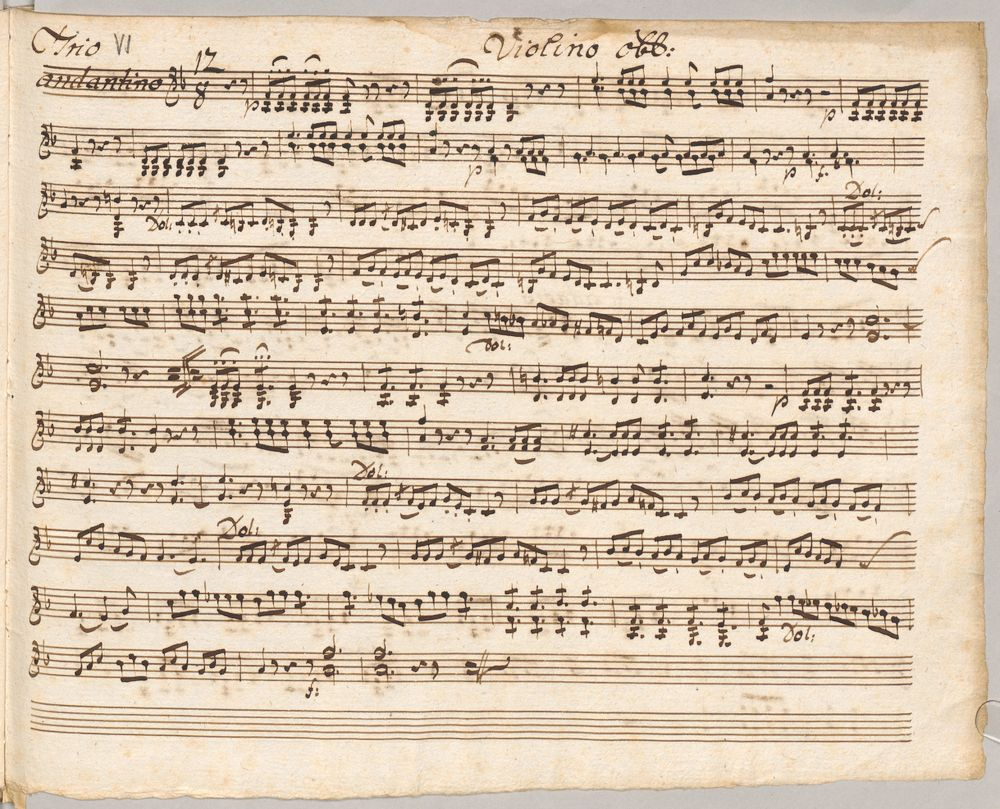 Trio VI Violino obb:
andantino 12/8
p p p
p p f.
Dol: Dol:
Dol:
p
Dol:
Dol:
Dol:
f: